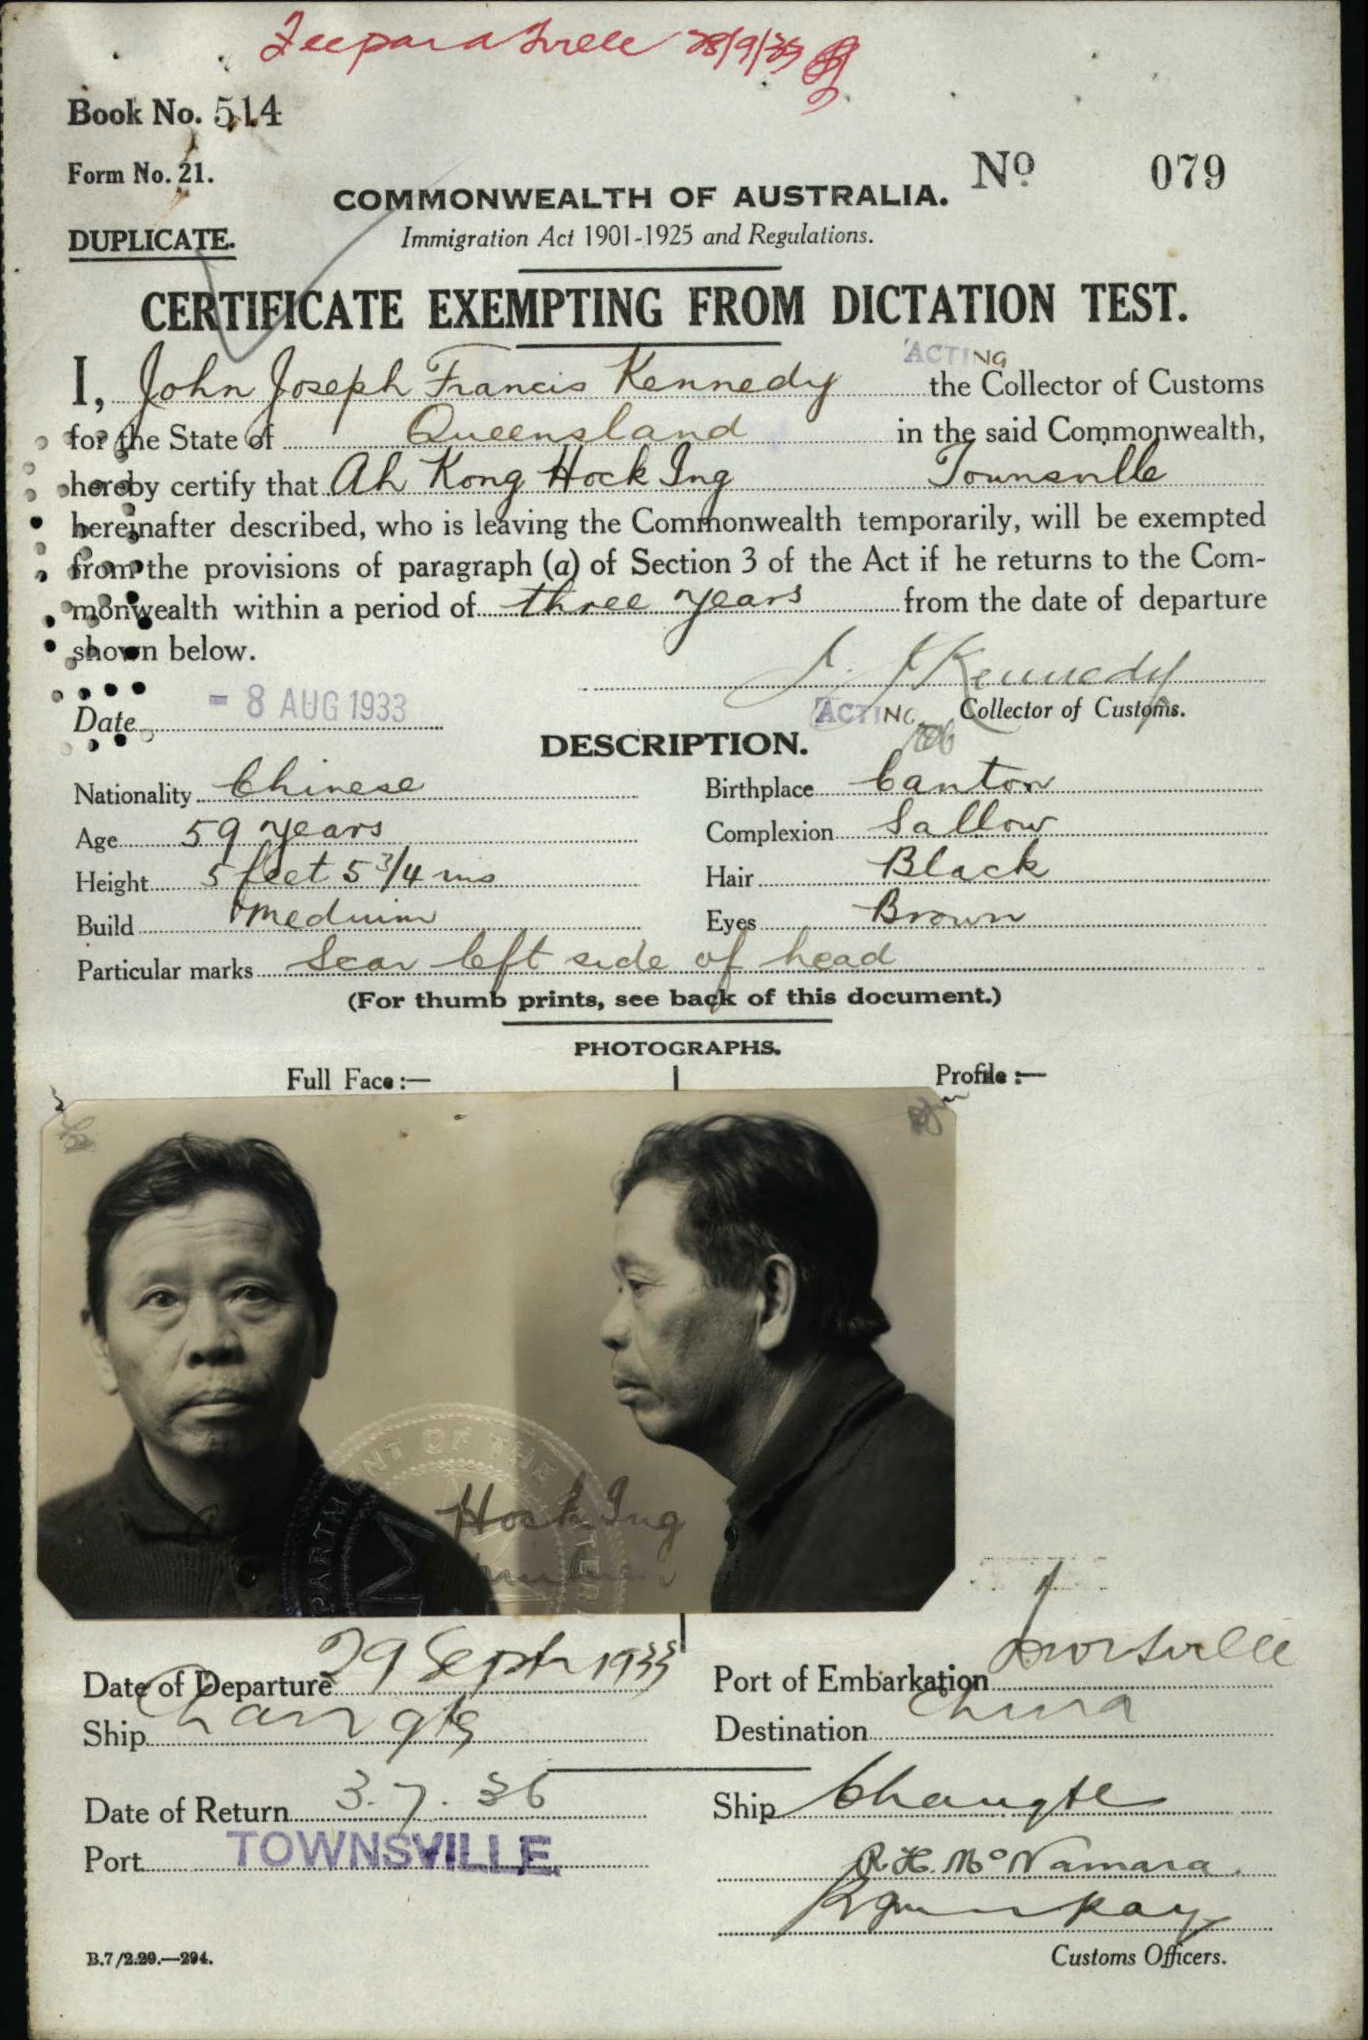 28/9/33
Book No. 514
Form No. 21.
No 079
COMMONWEALTH OF AUSTRALIA.
DUPLICATE.
Immigration Act 1901-1925 and Regulations.
CERTIFICATE EXEMPTING FROM DICTATION TEST.
ACTING
I, John Joseph Francis Kennedy the Collector of Customs
for the State of Queensland in the said Commonwealth,
hereby certify that Ah Kong Hock Ing Townsville
hereinafter described, who is leaving the Commonwealth temporarily, will be exempted
from the provisions of paragraph (a) of Section 3 of the Act if he returns to the Com-
monwealth within a period of three years from the date of departure
shown below.
J. J Kennedy
Date - 8 AUG 1933
ACTING Collector of Customs.
DESCRIPTION.
Nationality Chinese Birthplace Canton
Age 59 years Complexion Sallow
Height 5 feet 5 3/4 ins Hair Black
Build Medium Eyes Brown
Particular marks Scar left side of head
(For thumb prints, see back of this document.)
PHOTOGRAPHS.
Full Face :— Profile :—
PARTMENT OF THE INTER
Hock Ing
Date of Departure 29 Sept 1933 Port of Embarkation Townsville
Ship Changte Destination China
Date of Return 3.7.36 Ship Changte
Port TOWNSVILLE.
R. H. McNamara.
B.7/2.29.—294. Customs Officers.